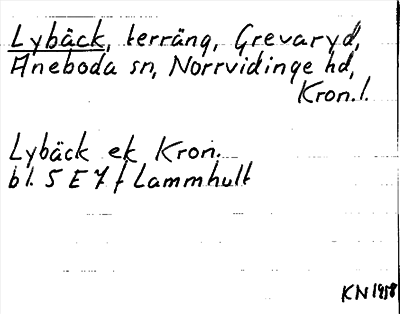 Lybäck, terräng, Grevaryd,
Aneboda sn, Norrvidinge hd,
Kron.l.
Lybäck ek Kron.
bl. 5 E 7 f Lammhult
KN 1958